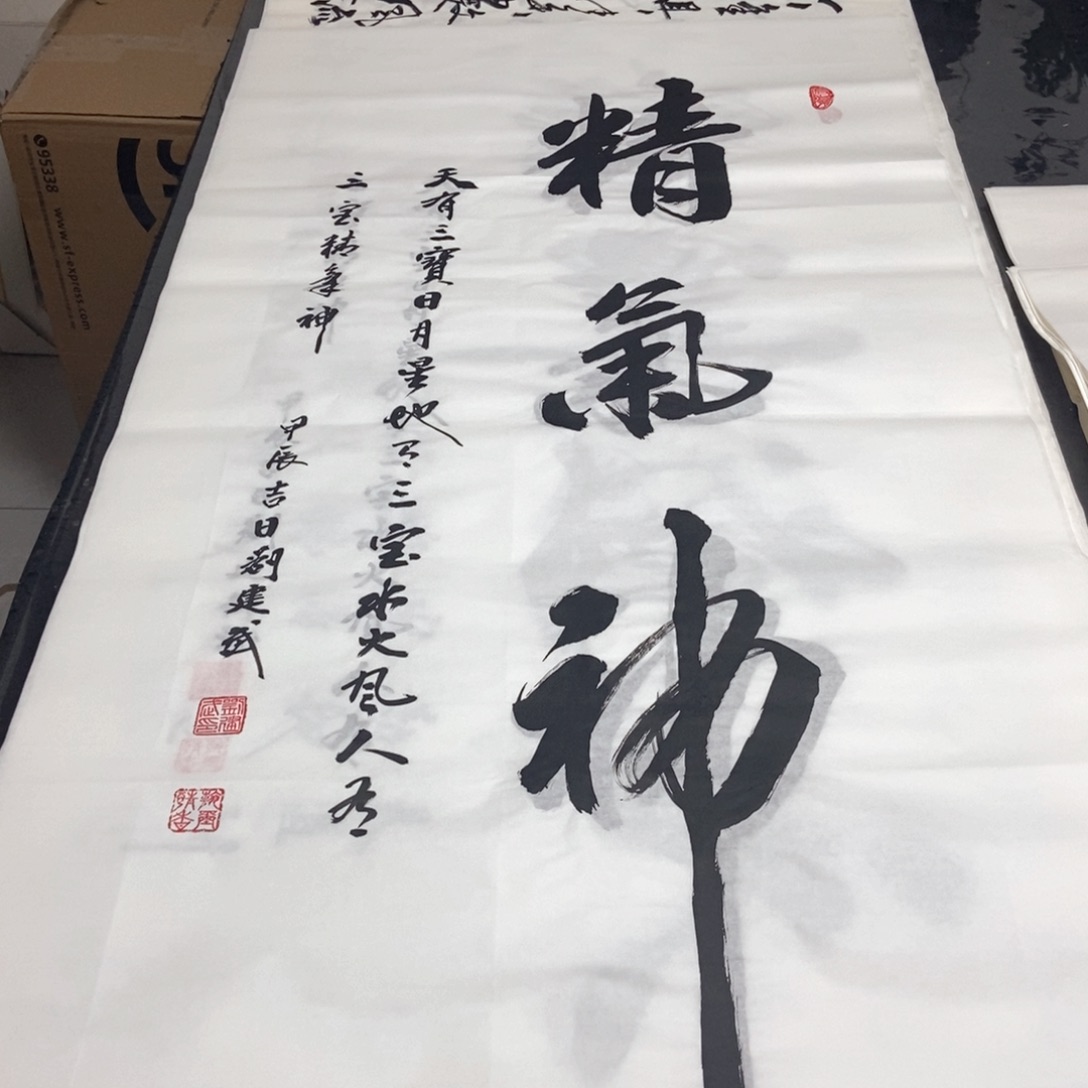 精氣神
天有三寶日月星地有三宝水火风人有
三宝精氣神
甲辰吉日劉建武
95338 www.sf-express.com